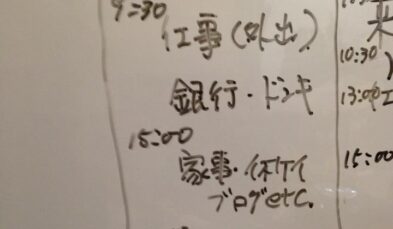 9:30
仕事(外出)
銀行・ドンキ
15:00
家事・休ケイ
ブログetc.
10:30
13:00
15:00